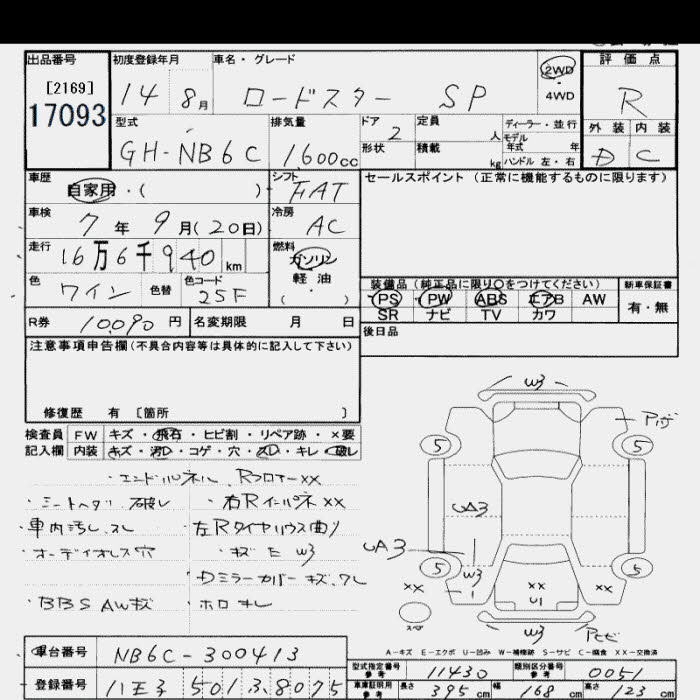 出品番号 初度登録年月 車名・グレード 2WD 評価点
[2169] 14 8月 ロードスター SP 4WD R
17093 型式 排気量 ドア 2 定員 人 ディーラー・並行 外装 内装
モデル年式 年
GH-NB6C 1600cc 形状 積載 kg ハンドル 左・右 D C
車歴 自家用・( ) シフト FAT セールスポイント (正常に機能するものに限ります)
車検 7年 9月(20日) 冷房 AC
走行 16万6千940km 燃料 ガソリン
軽油
( ・ )
色 ワイン 色替 色コード 25F
装備品 (純正品に限り○をつけてください) 新車保証書
PS PW ABS エアB AW 有・無
SR ナビ TV カワ
R券 10,090円 名変期限 月 日 後日品
注意事項申告欄(不具合内容等は具体的に記入して下さい)
修復歴 有 [箇所 ]
検査員 FW キズ・飛石・ヒビ割・リペア跡・×要
記入欄 内装 キズ・汚レ・コゲ・穴・スレ・キレ・破レ
・エンドパネル, Rフロアー××
・シートヘタリ, 破レ ・右Rインパネ××
・車内汚レ, スレ ・左Rタイヤハウス曲リ
・オーディオレス穴 ・キズ E W3
・Dミラーカバーキズ, ワレ
・BBS AWキズ ・ホロキレ
W3
5 5
UA3
UA3
5 5
W3
××
U1
××
××
W3
A-キズ E-エクボ U-凹み W-補修跡 S-サビ C-腐食 XX-交換済
車台番号 NB6C-300413 型式指定番号 参考 11430 類別区分番号 参考 0051
登録番号 八王子 501 ろ 8075 車庫証明用 参考 長さ 395cm 幅 168cm 高さ 123cm